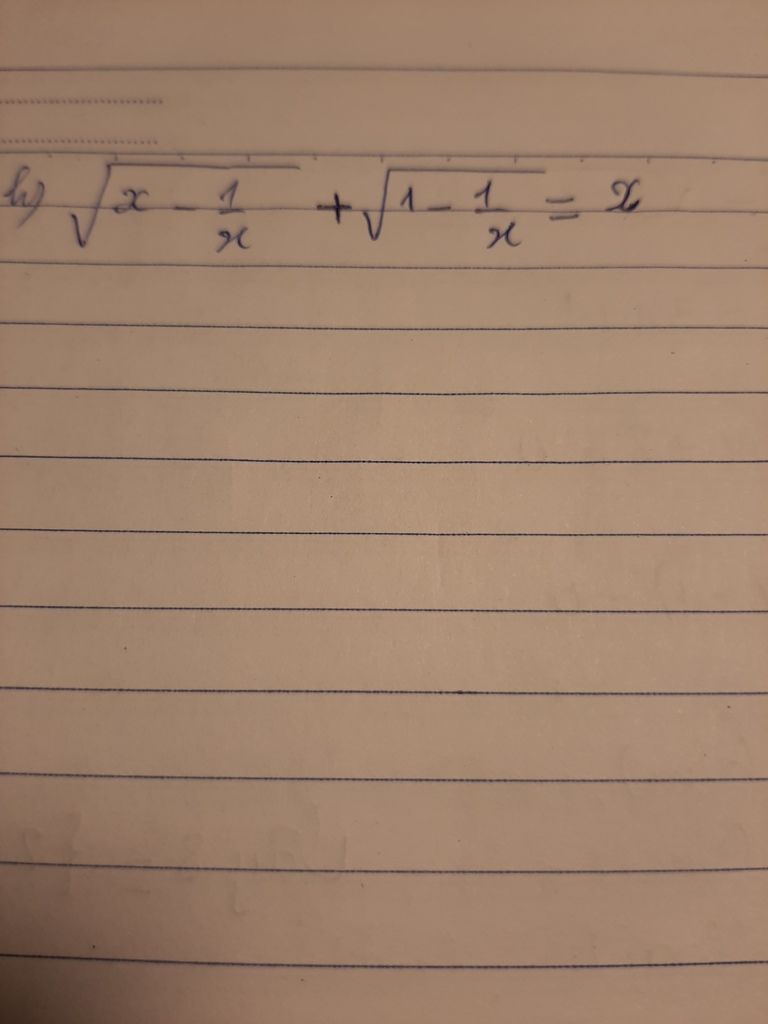 h) √(x - 1/x) + √(1 - 1/x) = x